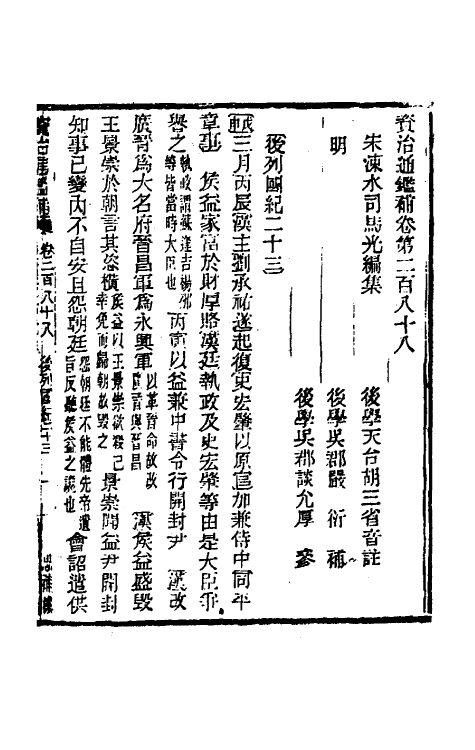 資治通鑑補卷第二百八十八
宋涑水司馬光編集　後學天台胡三省音註
明　後學吳郡嚴衍補
後學吳郡談允厚參
後列國紀二十三
三月丙辰漢主劉承祐遂起復史宏肇以原官加兼侍中同平
章事　侯益家富於財厚賂漢廷執政及史宏肇等由是大臣爭
譽之執政謂蘇逢吉楊邠等皆當時大臣也　丙寅以益兼中書令行開封尹　漢改
廣晉爲大名府晉昌軍爲永興軍以革晉命故改廣晉與晉昌　漢侯益盛毀
王景崇於朝言其恣橫侯益以王景崇欲殺己幸免而歸朝故毀之　景崇聞益尹開封
知事已變內不自安且怨朝廷怨朝廷不能體先帝遺旨反聽侯益之讒也　會詔遣供
資治通鑑補　卷二百八十八　後列國紀二十三